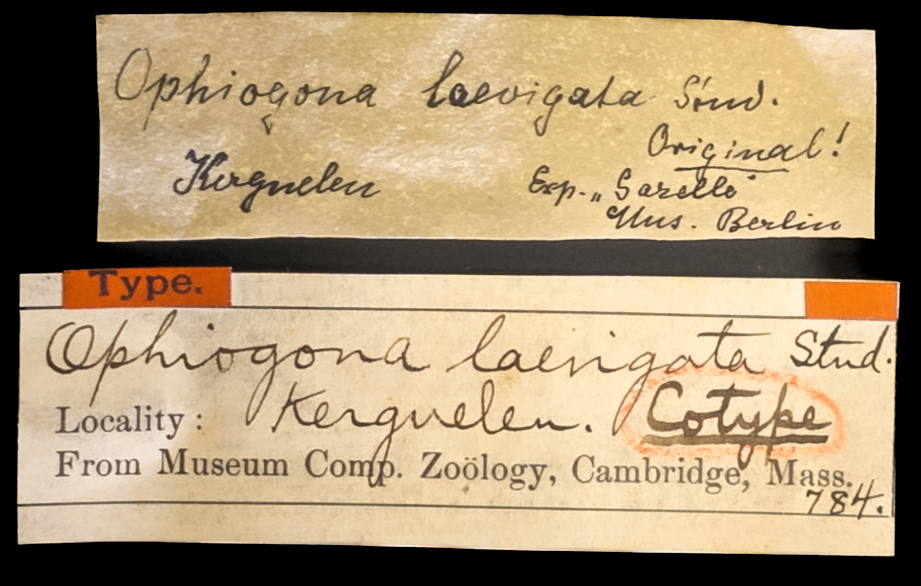 Ophiogona laevigata Stud.
Original!
Kerguelen Exp. „Gazelle"
Mus. Berlin
Type.
Ophiogona laevigata Stud.
Locality: Kerguelen. Cotype
From Museum Comp. Zoölogy, Cambridge, Mass.
784.